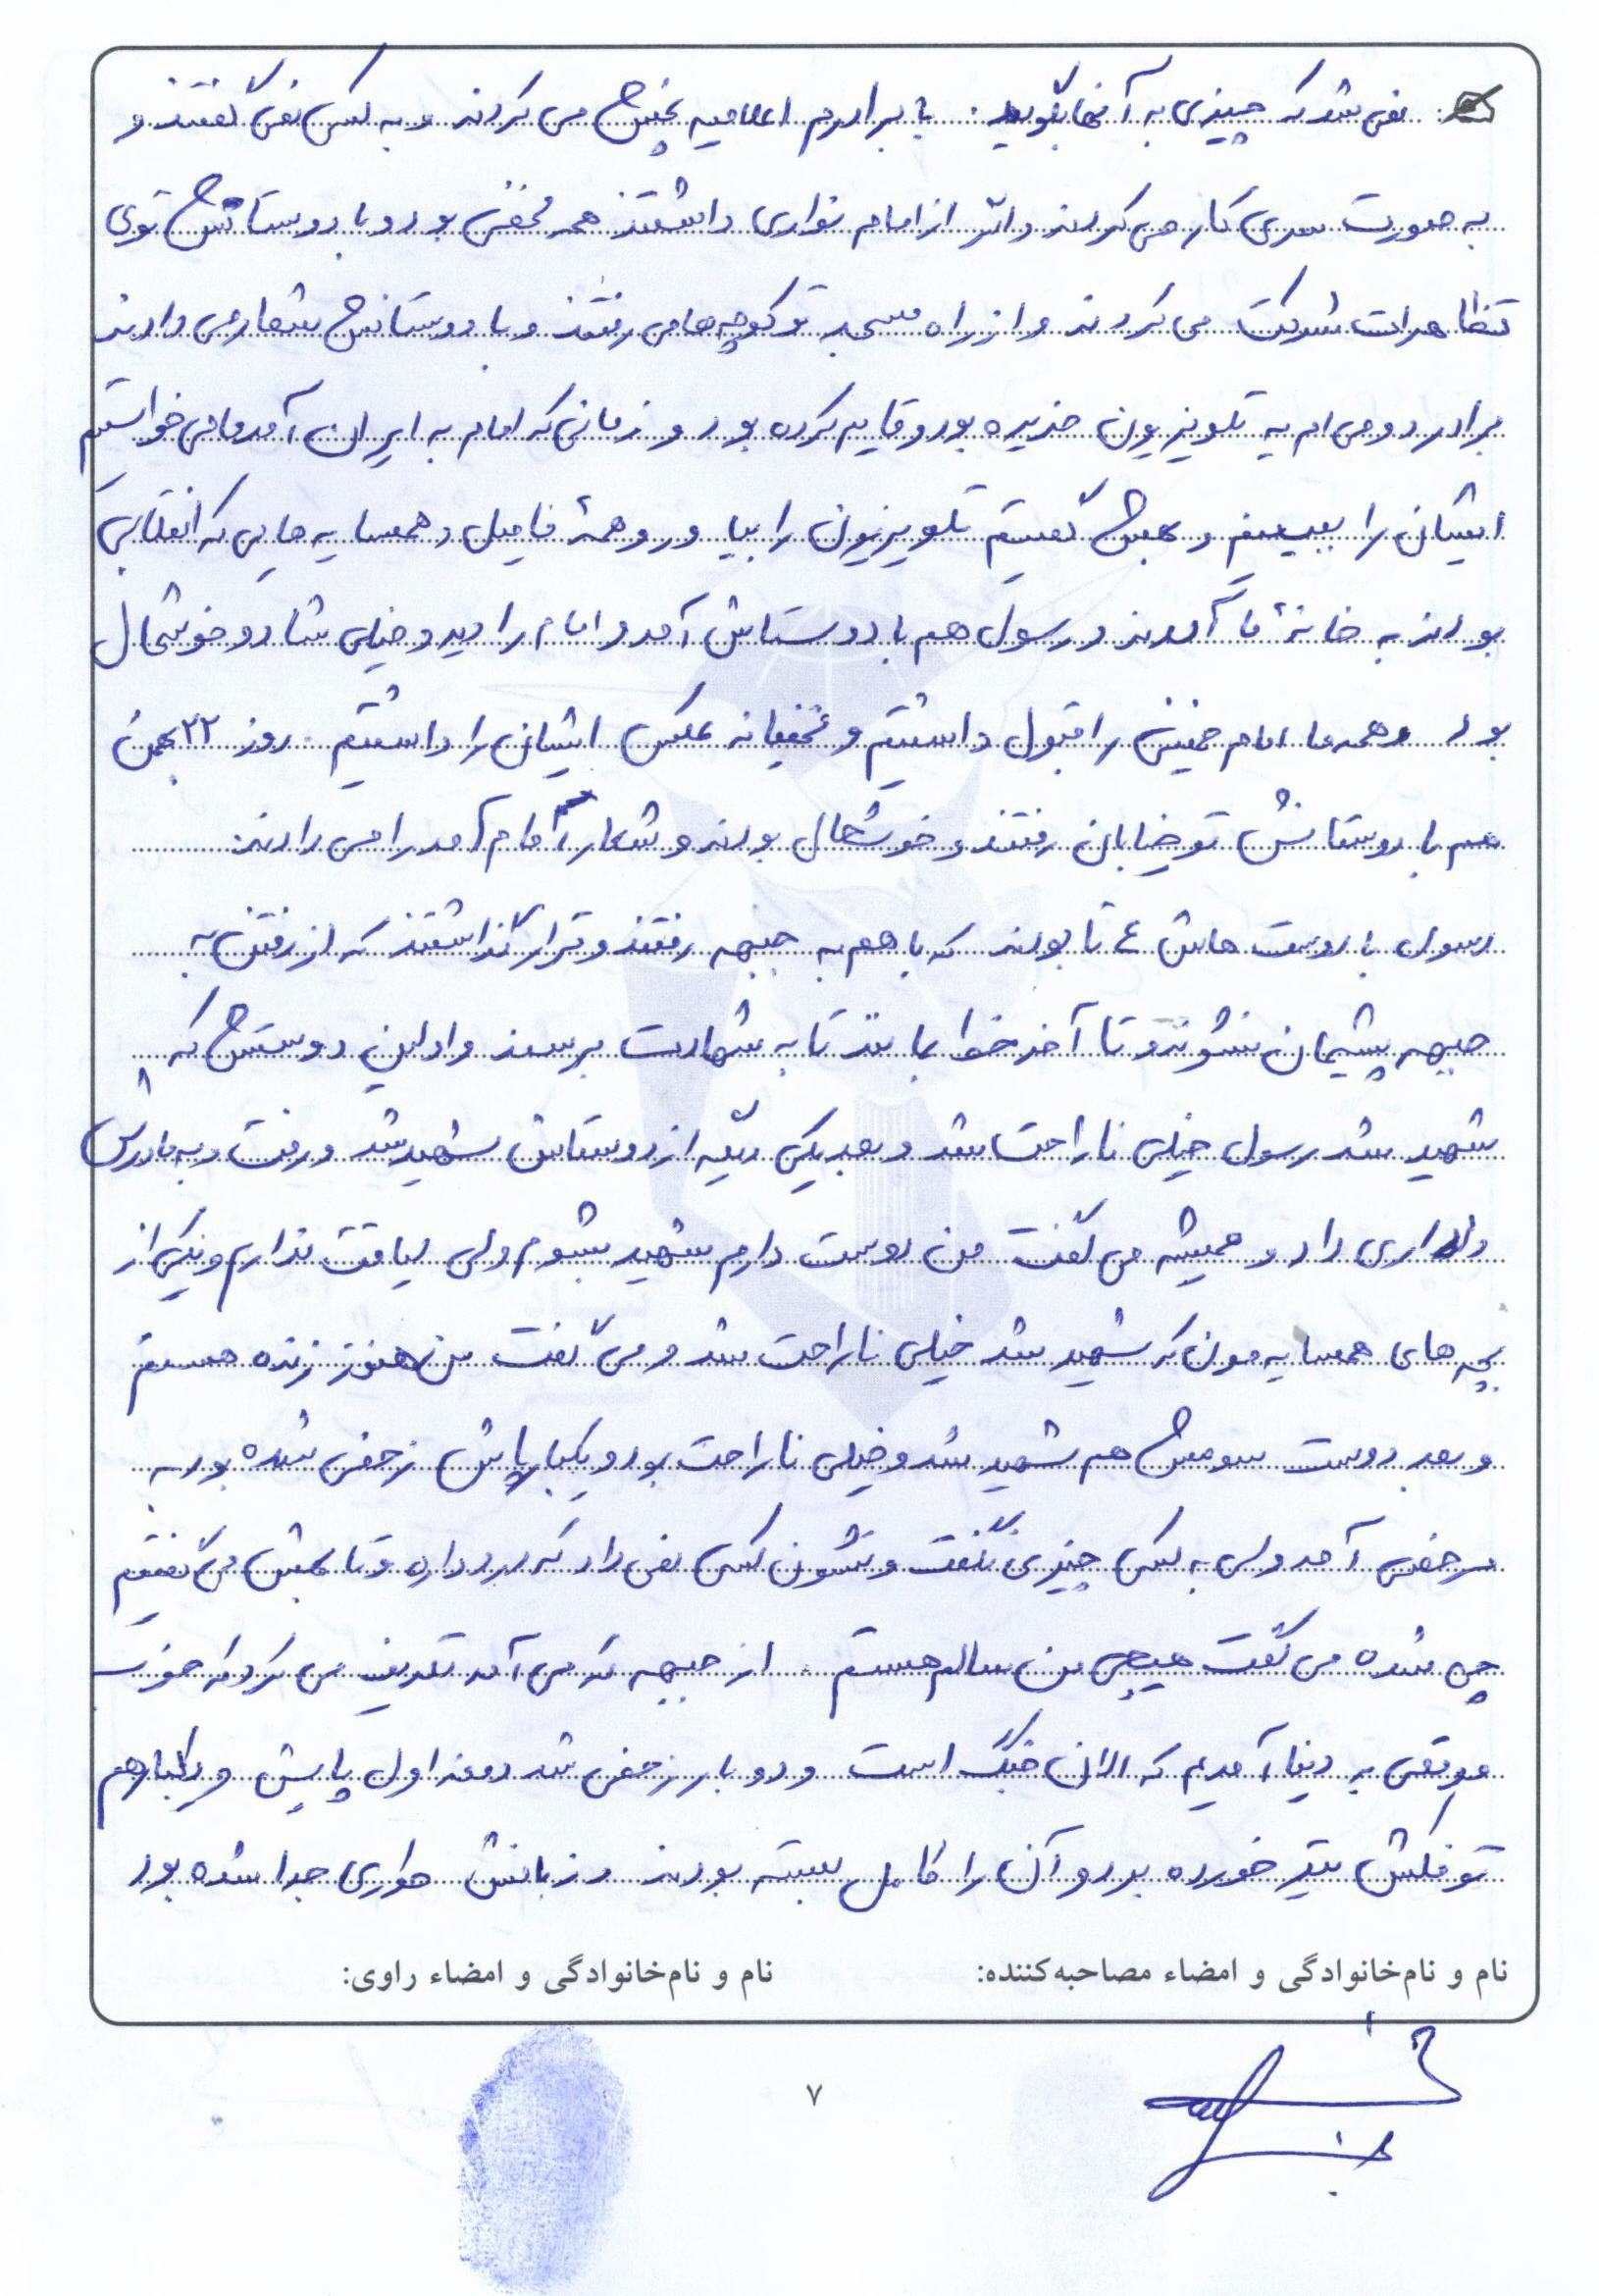 نمی شد که چیزی به آنها بگوید. با برادرم اعلامیه پخش می کردند و به کسی نمی گفتند و
به صورت سری کار می کردند و اگر از امام نواری داشتند همه مخفی بود و با دوستانش توی
تظاهرات شرکت می کردند و از راه مسجد تو کوچه ها می رفتند و با دوستانش شعار می دادند
برادر دومی ام یه تلویزیون خریده بود و قایم کرده بود و زمانی که امام به ایران آمد و ما می خواستیم
ایشان را ببینیم و بهش گفتیم تلویزیون را بیاور و همهٔ فامیل و همسایه هایی که انقلابی
بودند به خانهٔ ما آمدند و رسول هم با دوستاش آمد و امام را دید و خیلی شاد و خوشحال
بود و همه ما امام خمینی را قبول داشتیم و مخفیانه عکس ایشان را داشتیم. روز ۲۲ بهمن
هم با دوستانش تو خیابان رفتند و خوشحال بودند و شعار امام آمد را می دادند.
رسول با دوست هاش ٤ تا بودند که با هم به جبهه رفتند و قرار گذاشتند که از رفتن به
جبهه پشیمان نشوند و تا آخر خط بمانند تا به شهادت برسند و اولین دوستش که
شهید شد رسول خیلی ناراحت شد و بعد یکی دیگه از دوستاش شهید شد و رفت و به مادرش
دلداری داد و همیشه می گفت من دوست دارم شهید بشوم ولی لیاقت ندارم و یکی از
بچه های همسایه مون که شهید شد خیلی ناراحت شد و می گفت من هنوز زنده هستم
و بعد دوست سومش هم شهید شد و خیلی ناراحت بود و یکبار پاش زخمی شده بود به
مرخصی آمد ولی به کسی چیزی نگفت و نشون کسی نمی داد که درد داره و تا بهش می گفتیم
چی شده می گفت هیچی من سالم هستم. از جبهه که می آمد تعریف می کرد که خوب
موقعی به دنیا آمدیم که الان جنگ است و دو بار زخمی شد دفعه اول پایش و یکبار هم
تو فکش تیر خورده بود و آن را کامل بسته بودند و زبانش طوری جدا شده بود
نام و نام‌خانوادگی و امضاء مصاحبه‌کننده:
نام و نام‌خانوادگی و امضاء راوی:
۷